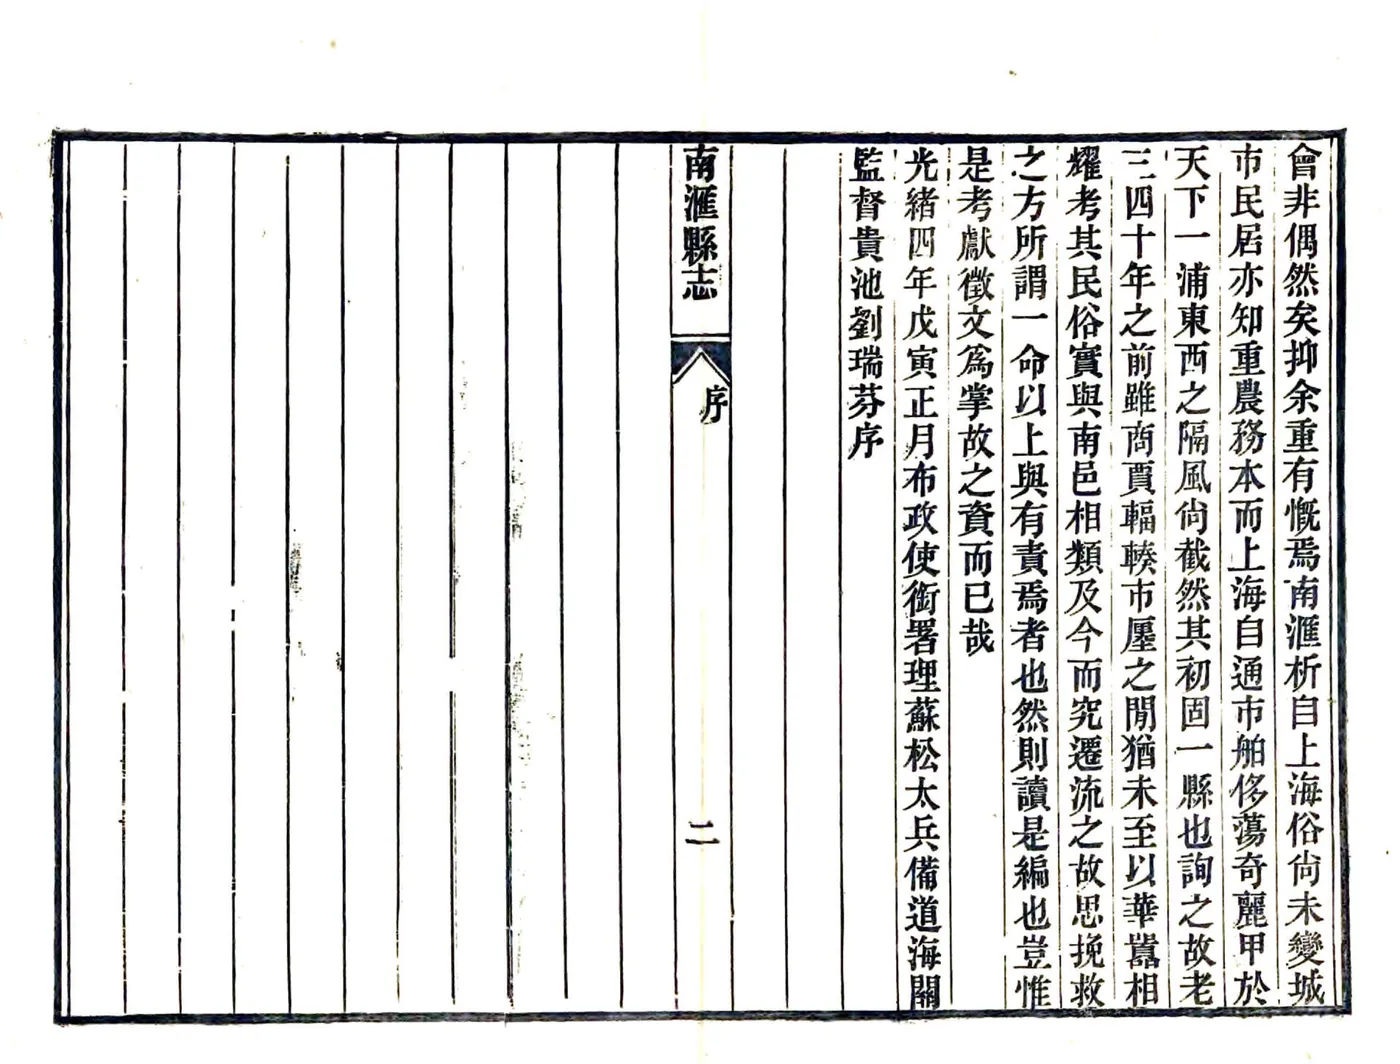 會非偶然矣抑余重有慨焉南滙析自上海俗尙未變城
市民居亦知重農務本而上海自通市舶侈蕩奇麗甲於
天下一浦東西之隔風尙截然其初固一縣也詢之故老
三四十年之前雖商賈輻輳市廛之閒猶未至以華囂相
耀考其民俗實與南邑相類及今而究遷流之故思挽救
之方所謂一命以上與有責焉者也然則讀是編也豈惟
是考獻徵文爲掌故之資而已哉
光緒四年戊寅正月布政使銜署理蘇松太兵備道海關
監督貴池劉瑞芬序
南滙縣志
序
二